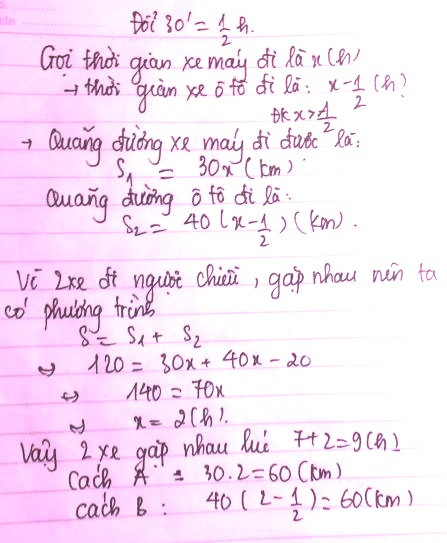 Đổi 30' = 1/2 h.
Gọi thời gian xe máy đi là x (h)
→ thời gian xe ô tô đi là: x - 1/2 (h)
ĐK x > 1/2
→ Quãng đường xe máy đi được là:
S₁ = 30x (km)
Quãng đường ô tô đi là:
S₂ = 40 (x - 1/2) (km).
Vì 2 xe đi ngược chiều, gặp nhau nên ta
có phương trình
S = S₁ + S₂
⇔ 120 = 30x + 40x - 20
⇔ 140 = 70x
⇔ x = 2 (h).
Vậy 2 xe gặp nhau lúc 7+2=9 (h)
Cách A = 30.2 = 60 (km)
cách B : 40 (2 - 1/2) = 60 (km)